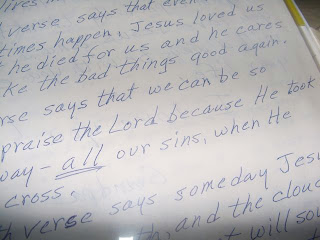 verse says that even
times happen, Jesus loved us
he died for us and he cares
ke the bad things good again.
rse says that we can be so
praise the Lord because He took
way - all our sins, when He
cross.
h verse says someday Jesu
th, and the cloud
t will sou